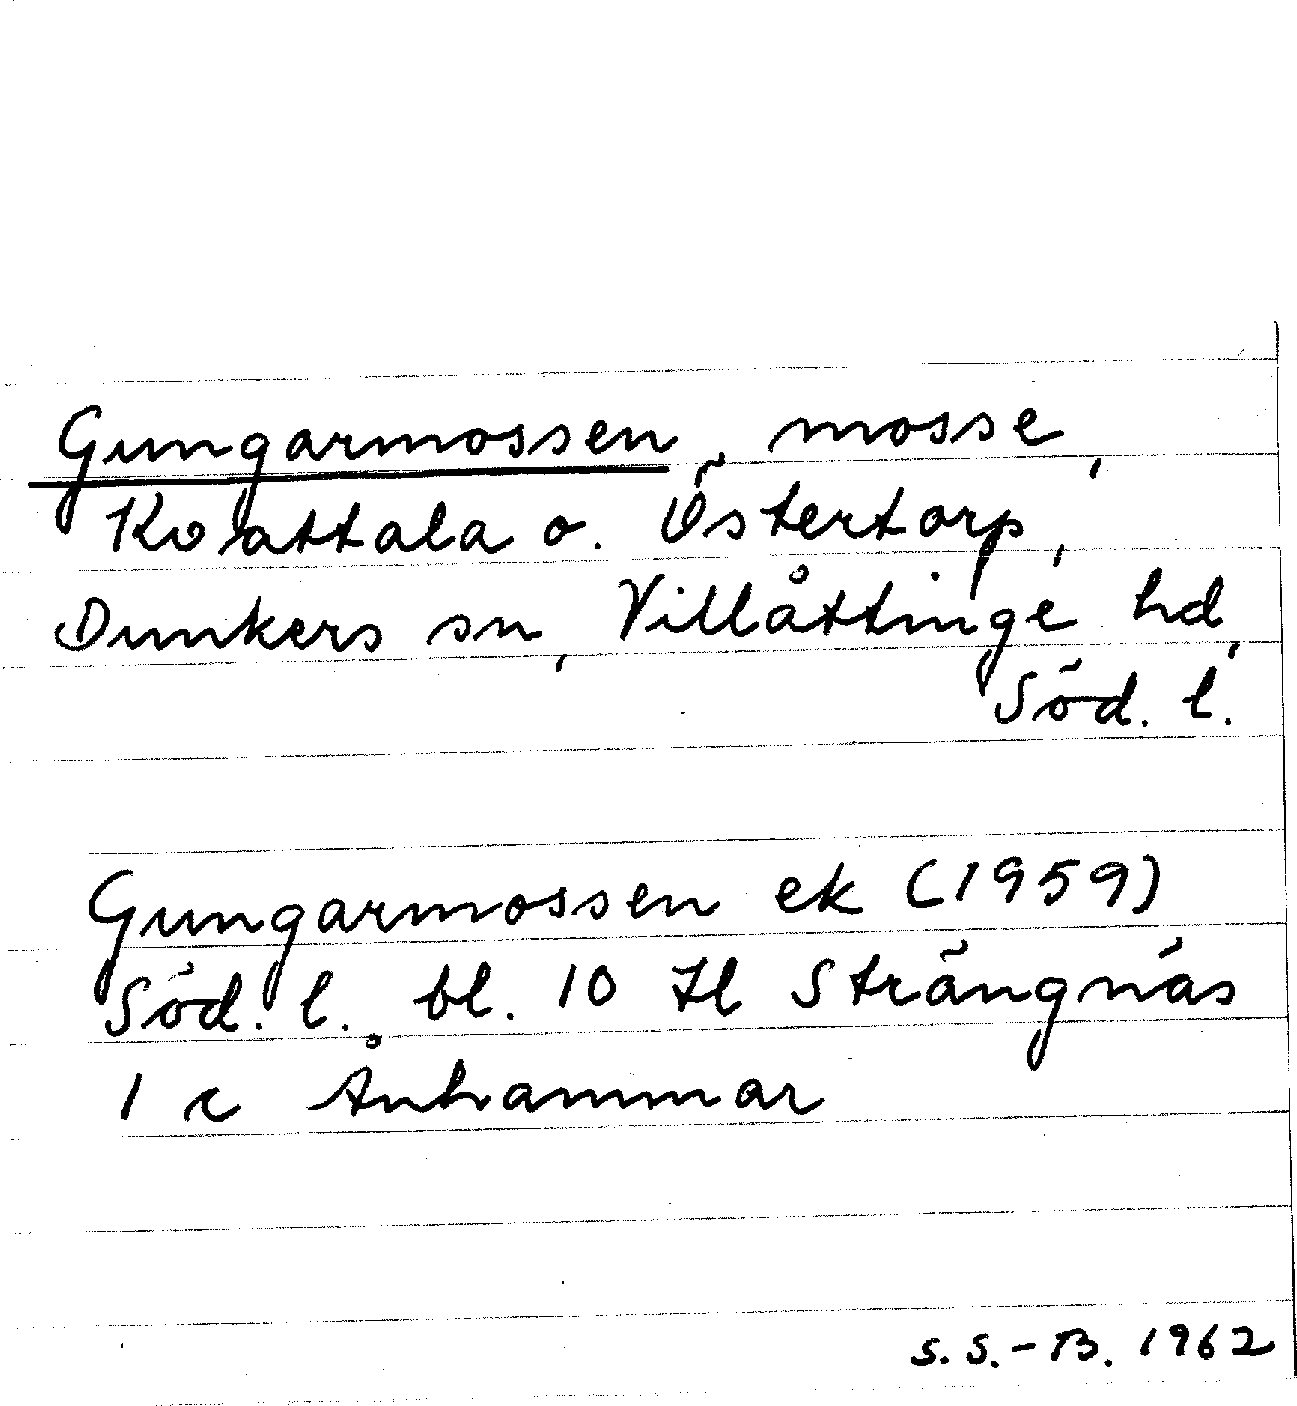 Gungarmossen, mosse,
Kvattala o. Östertorp,
Dunkers sn, Villåttinge hd,
Söd. l.
Gungarmossen ek (1959)
Söd. l. bl. 10 H Strängnäs
1 c Ånhammar
S. S.-B. 1962